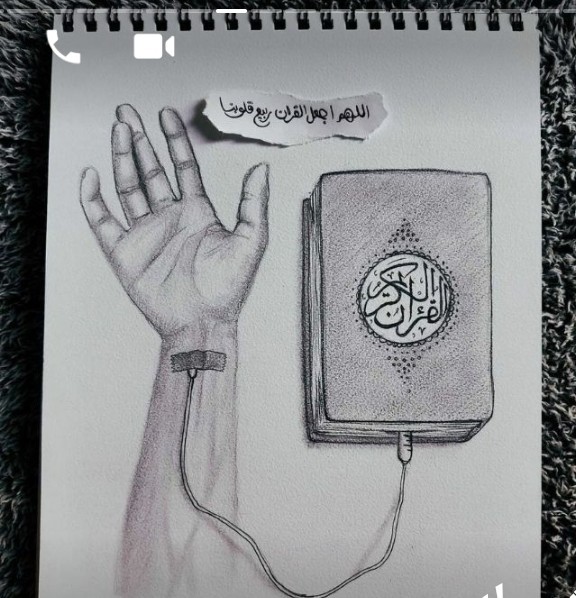 اللهم اجعل القران ربيع قلوبنا
القرآن الكريم